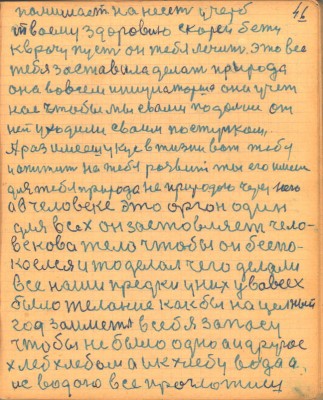 46
понимает нанесет ущерб
твоему здоровию скорей бежи
к врачу пуст он тебя лечит. Это все
тебя заставила делат природа
она вовсем инициатором она учет
нас чтобы мы сваим подолии он
ней уходили сваим поступком,
Араз имееш укус в жизни вот тебу
и апитит на тебу розвит ты его имееш
для тебя природа не природою через него
а в человеке это орган один
для всех он застовляет чело-
векова тело чтобы он беспо-
коелся и то делал чего делали
все наши предки у них у во всех
было желание как бы на целный
год заиметь в себя запасу
чтобы не было одно а и другое
хлеб хлебом а и к хлебу вода а
и с водою все проглотиш